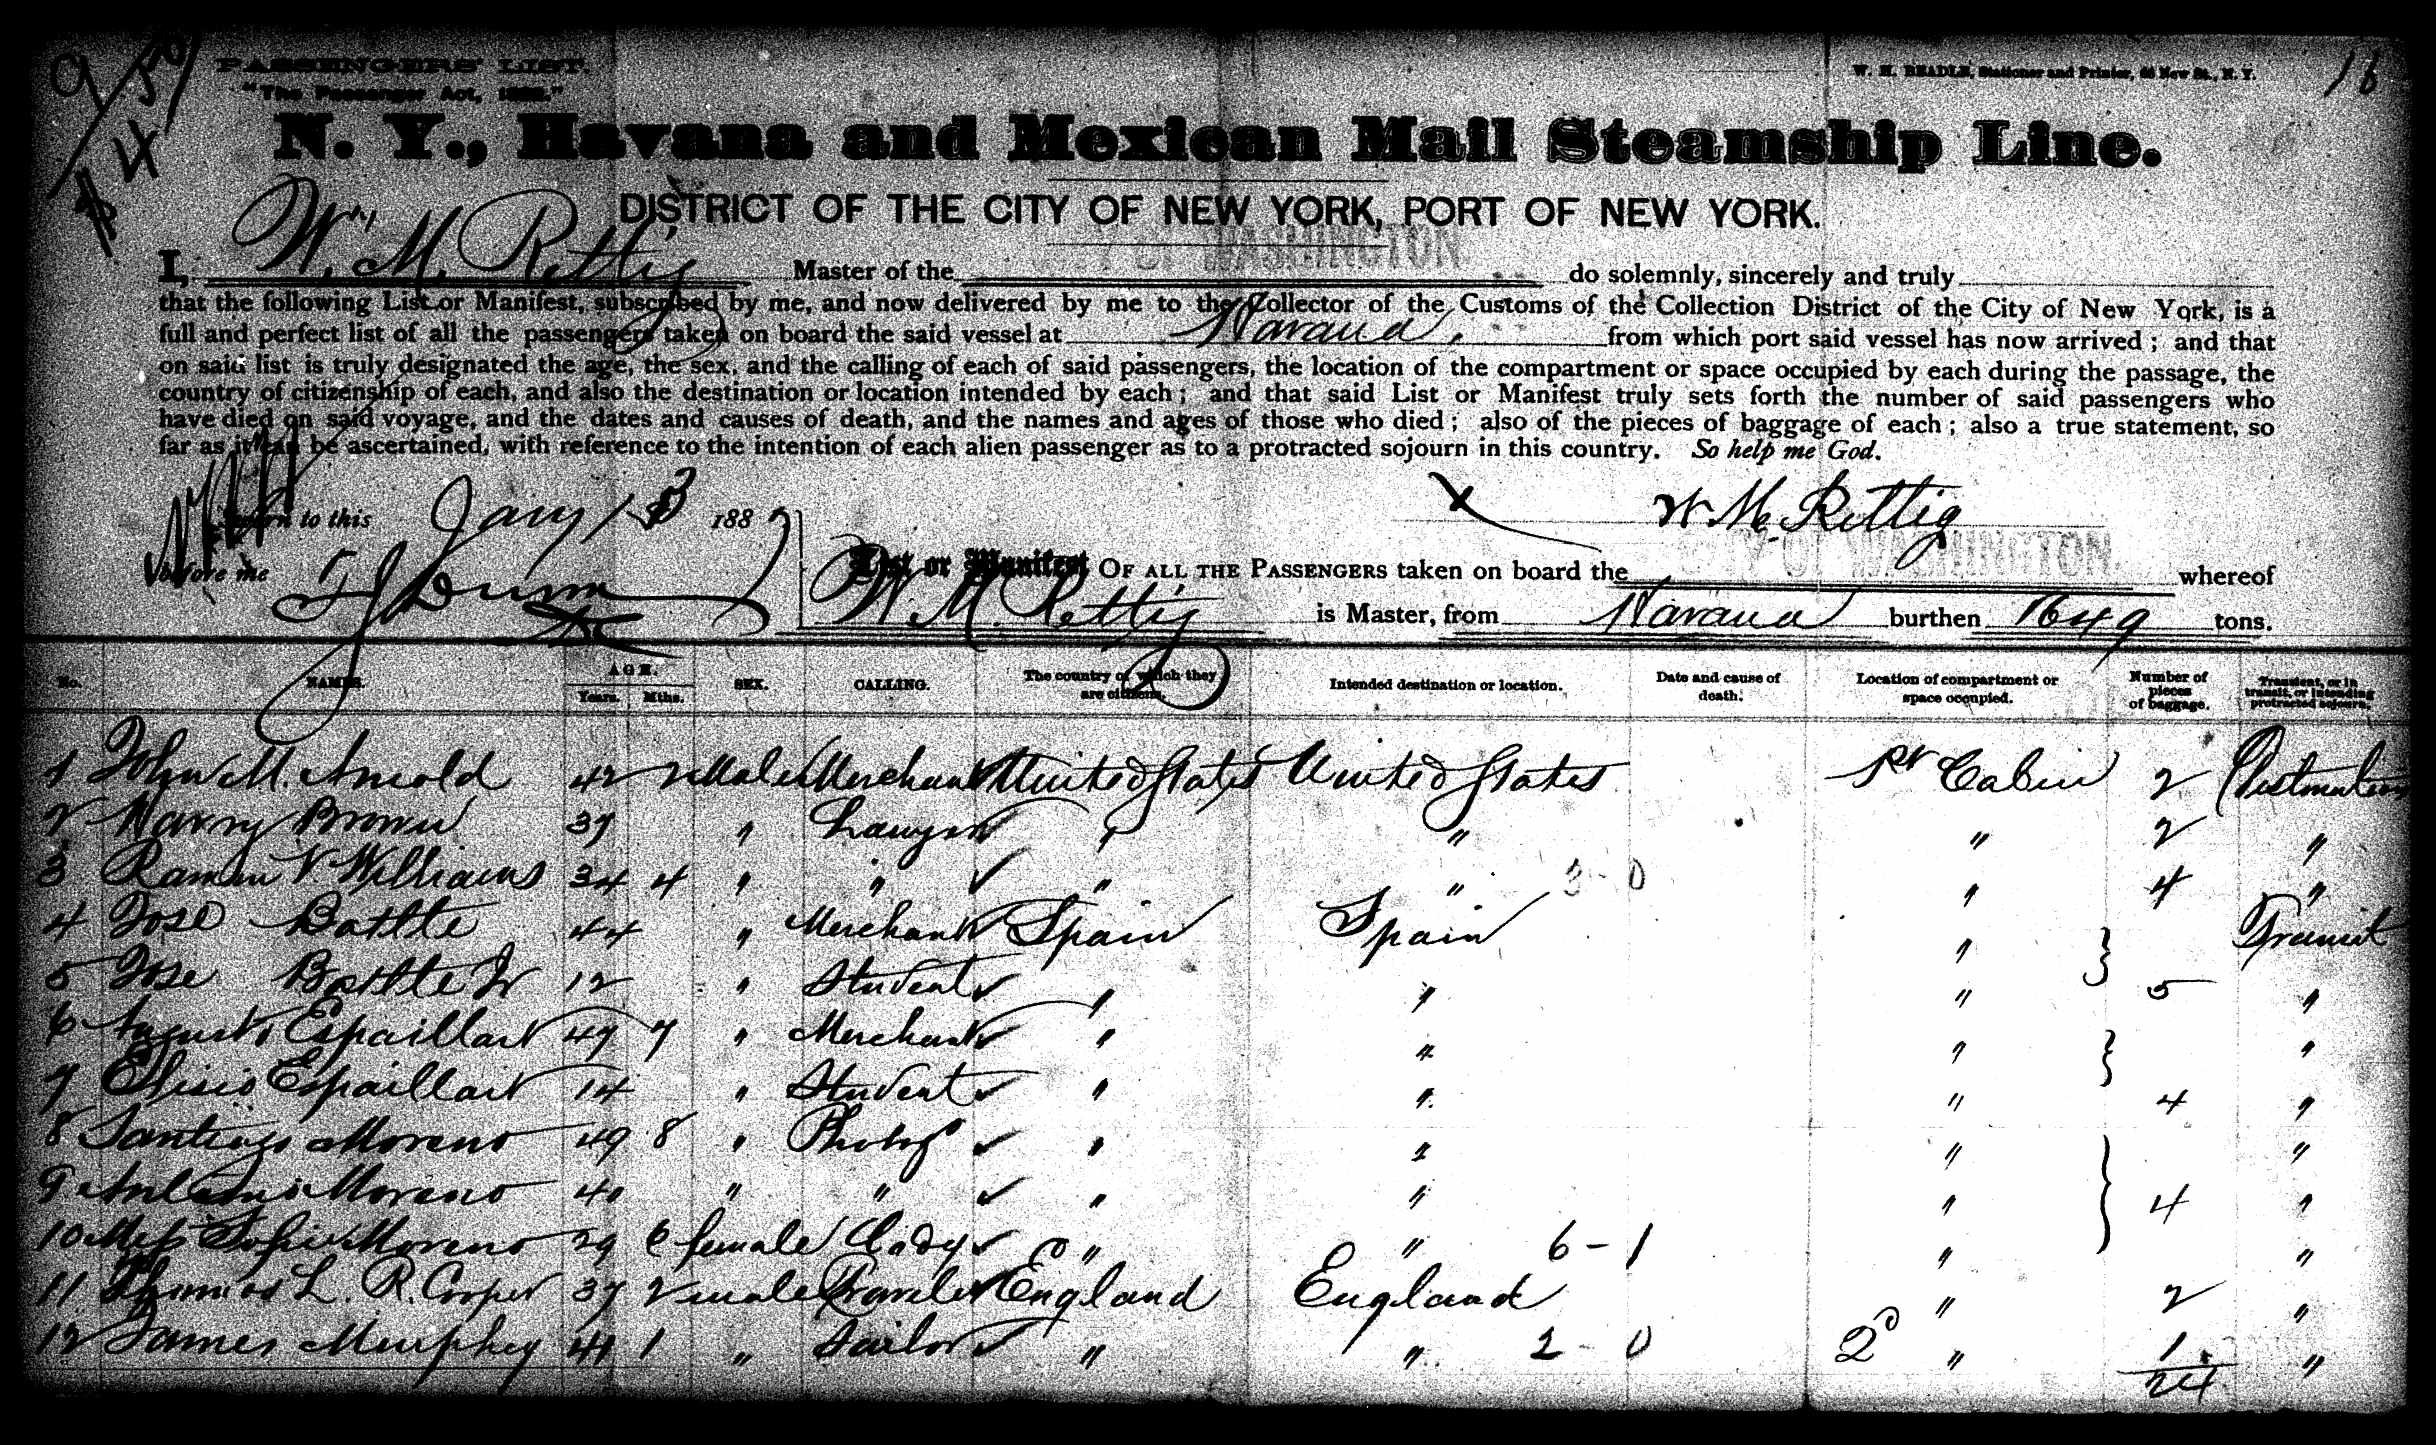 PASSENGERS' LIST.
"The Passenger Act, 1882."
W. H. BEADLE, Stationer and Printer, New St., N. Y.
16
N. Y., Havana and Mexican Mail Steamship Line.
DISTRICT OF THE CITY OF NEW YORK, PORT OF NEW YORK.
I, W. M. Rettig Master of the Y OF WASHINGTON do solemnly, sincerely and truly
that the following List or Manifest, subscribed by me, and now delivered by me to the Collector of the Customs of the Collection District of the City of New York, is a
full and perfect list of all the passengers taken on board the said vessel at Havana, from which port said vessel has now arrived; and that
on said list is truly designated the age, the sex, and the calling of each of said passengers, the location of the compartment or space occupied by each during the passage, the
country of citizenship of each, and also the destination or location intended by each; and that said List or Manifest truly sets forth the number of said passengers who
have died on said voyage, and the dates and causes of death, and the names and ages of those who died; also of the pieces of baggage of each; also a true statement, so
far as it can be ascertained, with reference to the intention of each alien passenger as to a protracted sojourn in this country. So help me God.
Sworn to this Jany 13 188
X W M Rettig
before me
List or Manifest OF ALL THE PASSENGERS taken on board the Y OF WASHINGTON whereof
W. M. Rettig is Master, from Havana burthen 1649 tons.
No. NAMES. AGE. Years. Mths. SEX. CALLING. The country of which they are citizens. Intended destination or location. Date and cause of death. Location of compartment or space occupied. Number of pieces of baggage. Transient, or in transit, or intending protracted sojourn.
1 John M. Arnold 42 2 Male Merchant United States United States 1st Cabin 2 Destination
2 Harry Brown 37 " Lawyer " " " 2 "
3 Ramon V Williams 34 4 " " " " 3 - 0 " 4 "
4 Jose Battle 44 " Merchant Spain Spain " Transit
5 Jose Battle Jr 12 " Student " " " 5 "
6 Augusto Espaillat 47 7 " Merchant " " " "
7 Elisio Espaillat 14 " Student " " " 4 "
8 Santiago Moreno 49 8 " Photogr " " " "
9 Moreno 40 " " " " " 4 "
10 Sofie Moreno 29 6 female Lady " " 6 - 1 " "
11 Thomas L. R. Cooper 37 2 male Traveler England England " 2 "
12 James Murphey 41 1 " Sailor " " 2 - 0 2d " 1 "
24